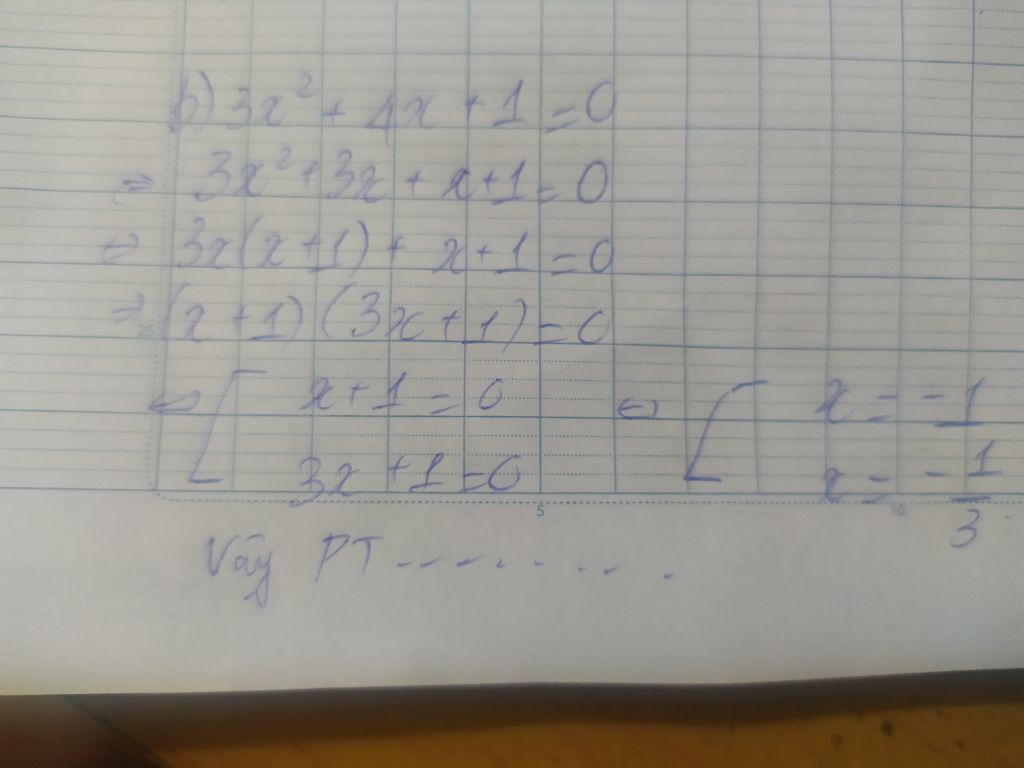 b) 3x² + 4x + 1 = 0
⇒ 3x² + 3x + x + 1 = 0
⇔ 3x(x + 1) + x + 1 = 0
⇒ (x + 1) (3x + 1) = 0
⇔ [ x + 1 = 0 ⇔ [ x = -1
3x + 1 = 0 x = -1/3
25
5 10
Vậy PT.........